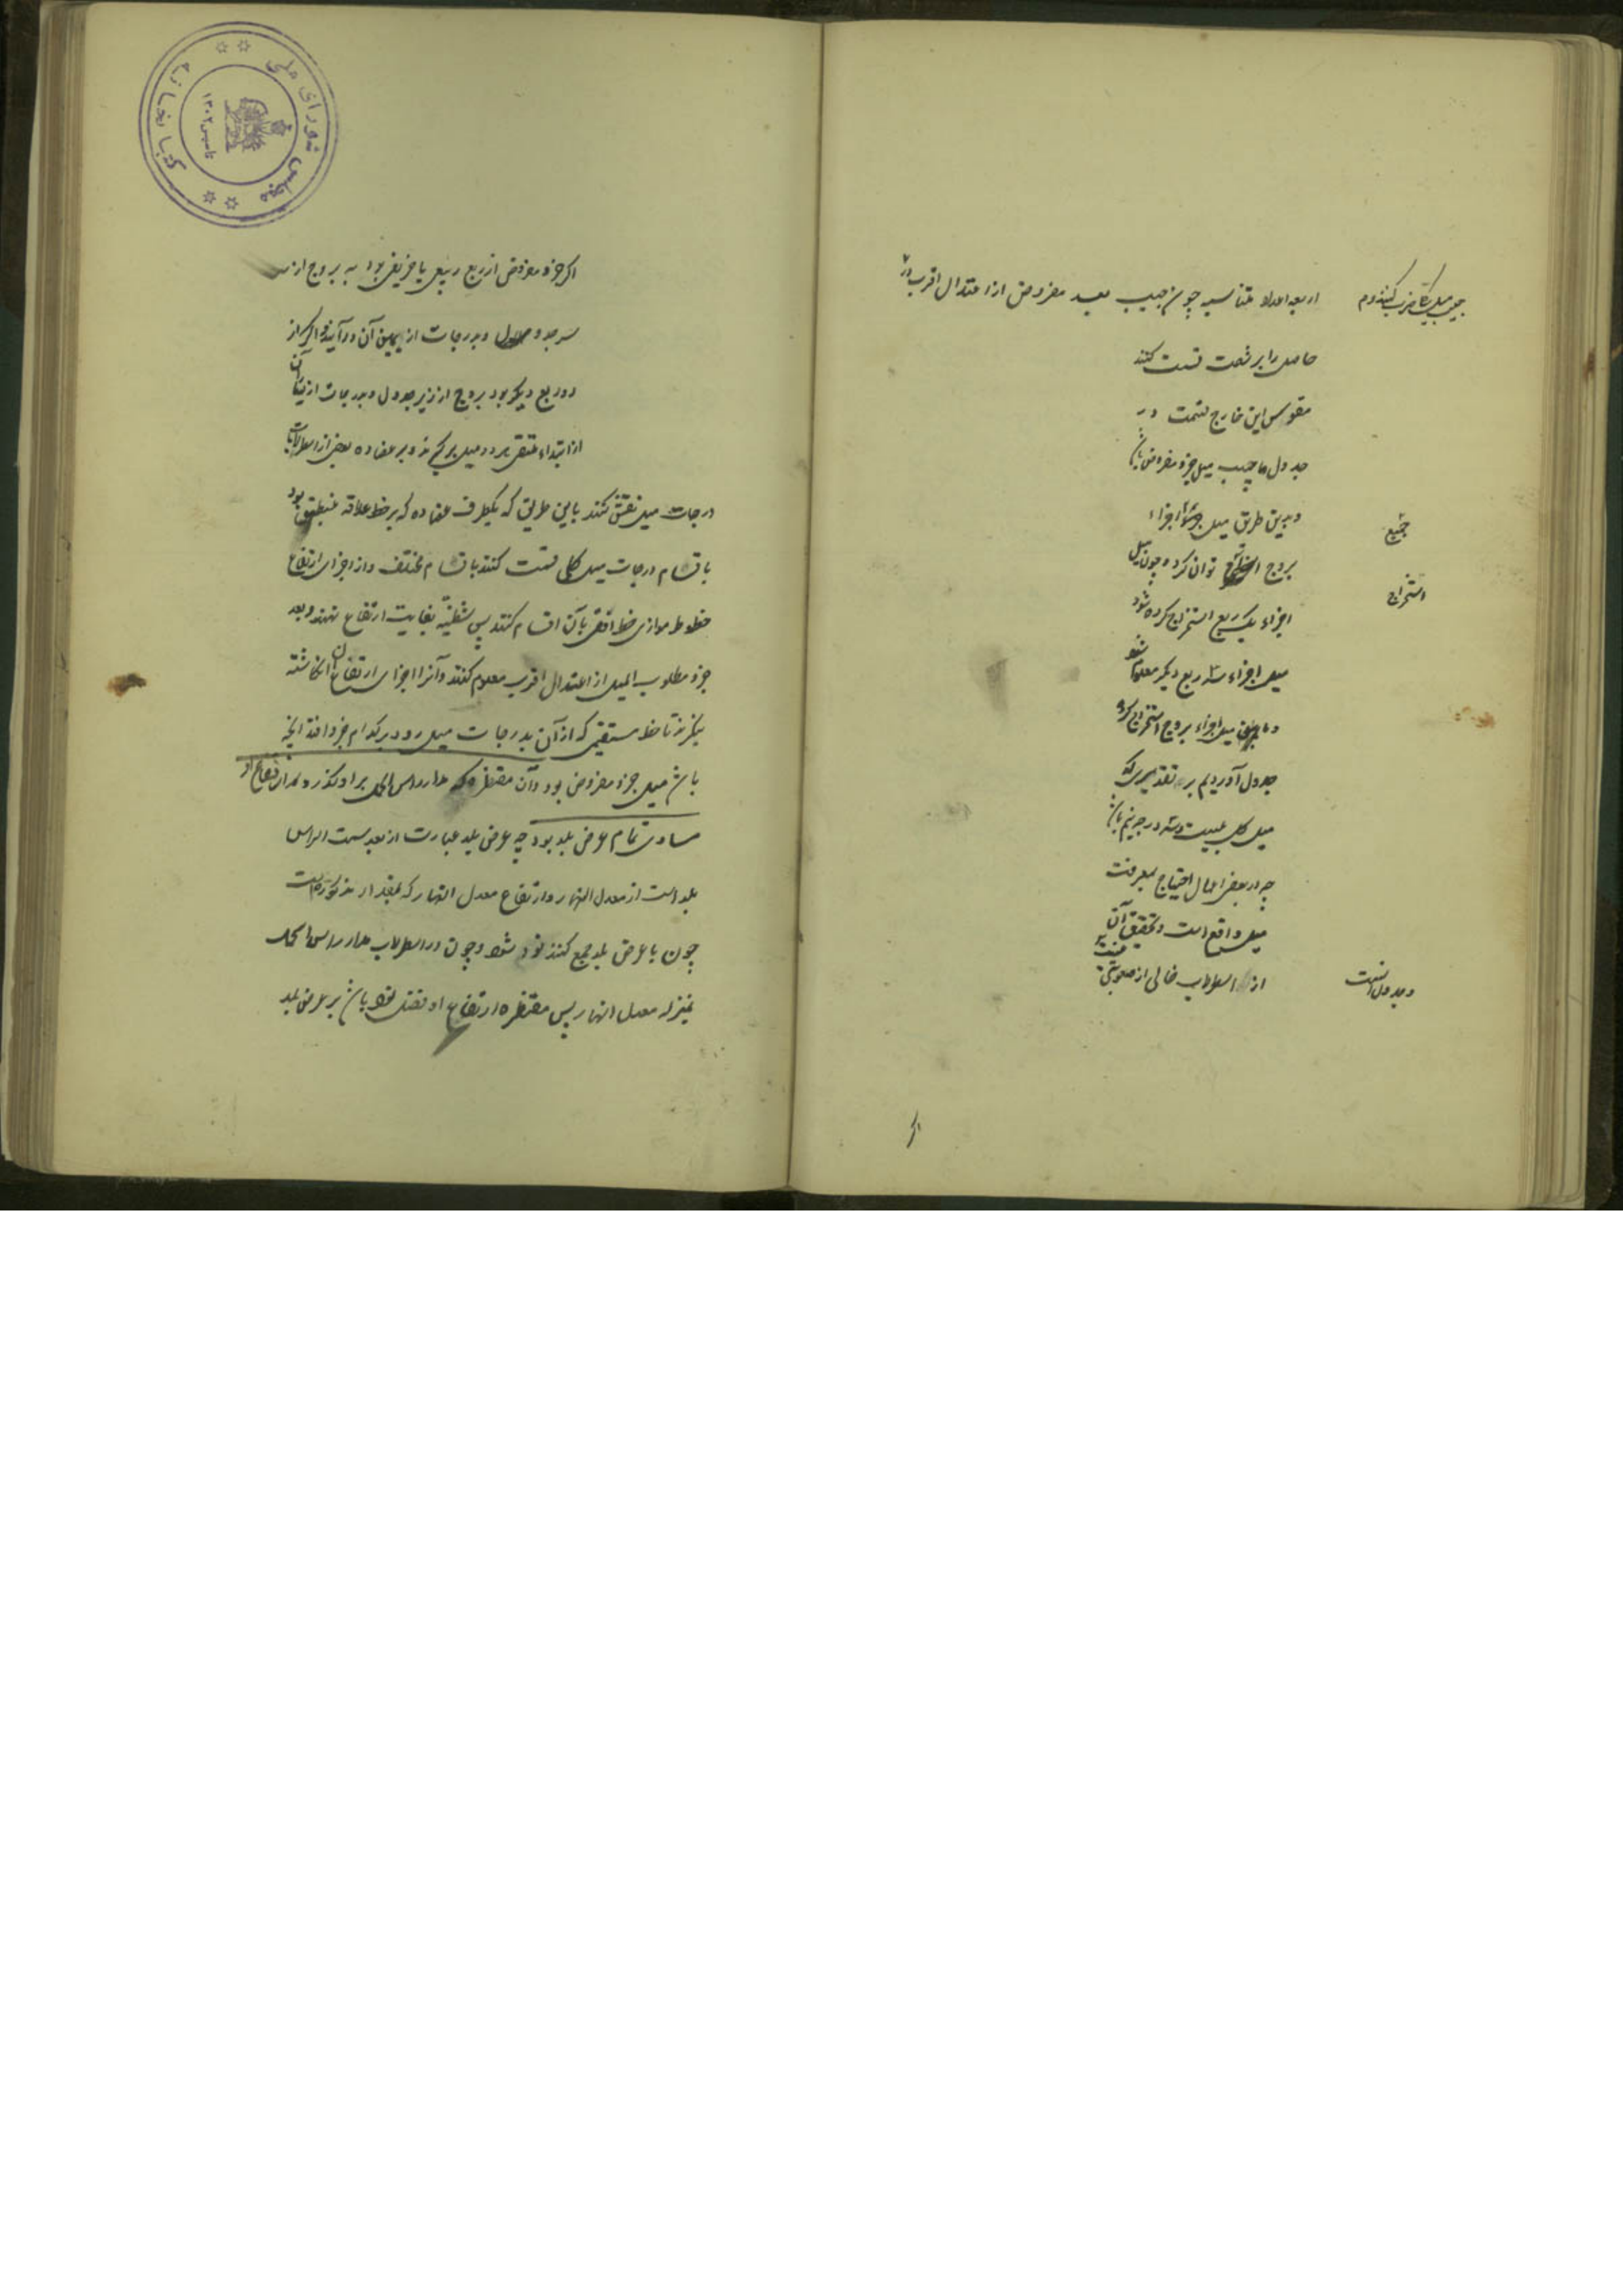 اربعه اعداد متناسبه چون جیب بعد مفروض از اعتدال اقرب در
جیب میل کلی ضرب کنند و م
حاصل را بر شصت قسمت کنند
مقوس این خارج قسمت در
جدول جیب میل جزء مفروض باشد
و بدین طریق میل اجزاء
جمیع
بروج توان کرد و چون میل
استخراج
اجزاء یکربع استخراج کرده شود
میل اجزاء سه ربع دیگر معلوم شود
و ما میل اجزاء بروج استخراج کرده
جدول آوردیم بر تقدیری که
میل کلی بیست و سه درجه و نیم باشد
چه در بعضی اعمال احتیاج بمعرفت
میل واقع است و تحقیق آن
از اسطرلاب خالی از صعوبتی نیست
و جدول اینست
اگر جزء مفروض از ربع ربیعی یا خریفی بود به بروج از
سر جدول و بدرجات از یمین آن درآیند و اگر از
دو ربع دیگر بود بروج از زیر جدول و بدرجات از یسار آن
از ابتداء ملتقی هر دو میل برگیرند و بر عضاده بعضی از اسطرلابات
درجات میل نقش کنند باین طریق که یکطرف عضاده که بر خط علاقه منطبق بود
باقسام درجات میل کلی قسمت کنند باقسام مختلف و از اجزای ارتفاع
خطوط موازی خط افق بآن اقسام کنند پس شظیه بغایت ارتفاع نهند و بعد
جزء مطلوب المیل از اعتدال اقرب معلوم کنند و آنرا اجزای ارتفاع انگاشته
بنگرند تا خط مستقیمی که از آن بدرجات میل رود بر کدام جزو افتد آنچه
باشد میل جزء مفروض بود و آن مقنطره که مدار راس الحمل بر او بگذرد مدار ارتفاع او
مساوی تمام عرض بلد بود چه عرض بلد عبارت از بعد سمت الراس
بلد است از معدل النهار و ارتفاع معدل النهار که بمقدار مذکور است
چون با عرض بلد جمع کنند نود شود و چون در اسطرلاب مدار راس الحمل
بمنزله معدل النهار پس مقنطره ارتفاع او فضل نود باشد بر عرض بلد
کتابخانه مجلس شورای ملی
تاسیس ۱۳۰۲